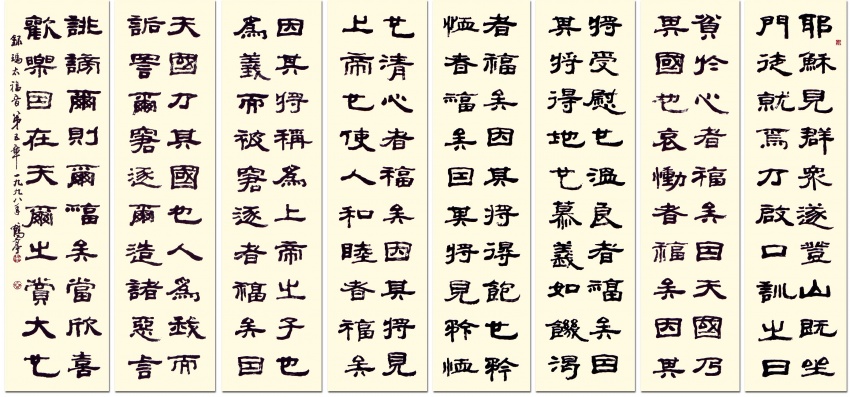 耶穌見群眾遂登山既坐
門徒就焉乃啟口訓之曰
貧於心者福矣因天國乃
其國也哀慟者福矣因其
將受慰也溫良者福矣因
其將得地也慕義如饑渴
者福矣因其將得飽也矜
恤者福矣因其將見矜恤
也清心者福矣因其將見
上帝也使人和睦者福矣
因其將稱為上帝之子也
為義而被窘逐者福矣因
天國乃其國也人為我而
詬詈爾窘逐爾造諸惡言
誹謗爾則爾福矣當欣喜
歡樂因在天爾之賞大也
錄瑪太福音第五章一九九八年